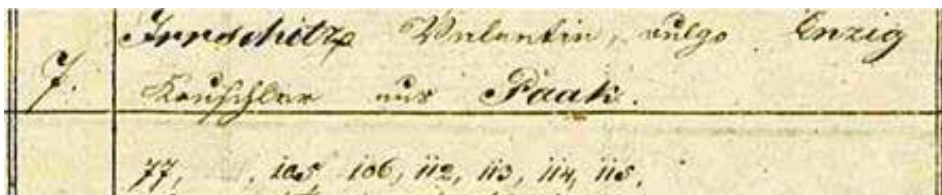 7. Jureschitz Valentin, vulgo Enzig
Keuschler aus Faak.
77, 105 106, 112, 113, 114, 115.